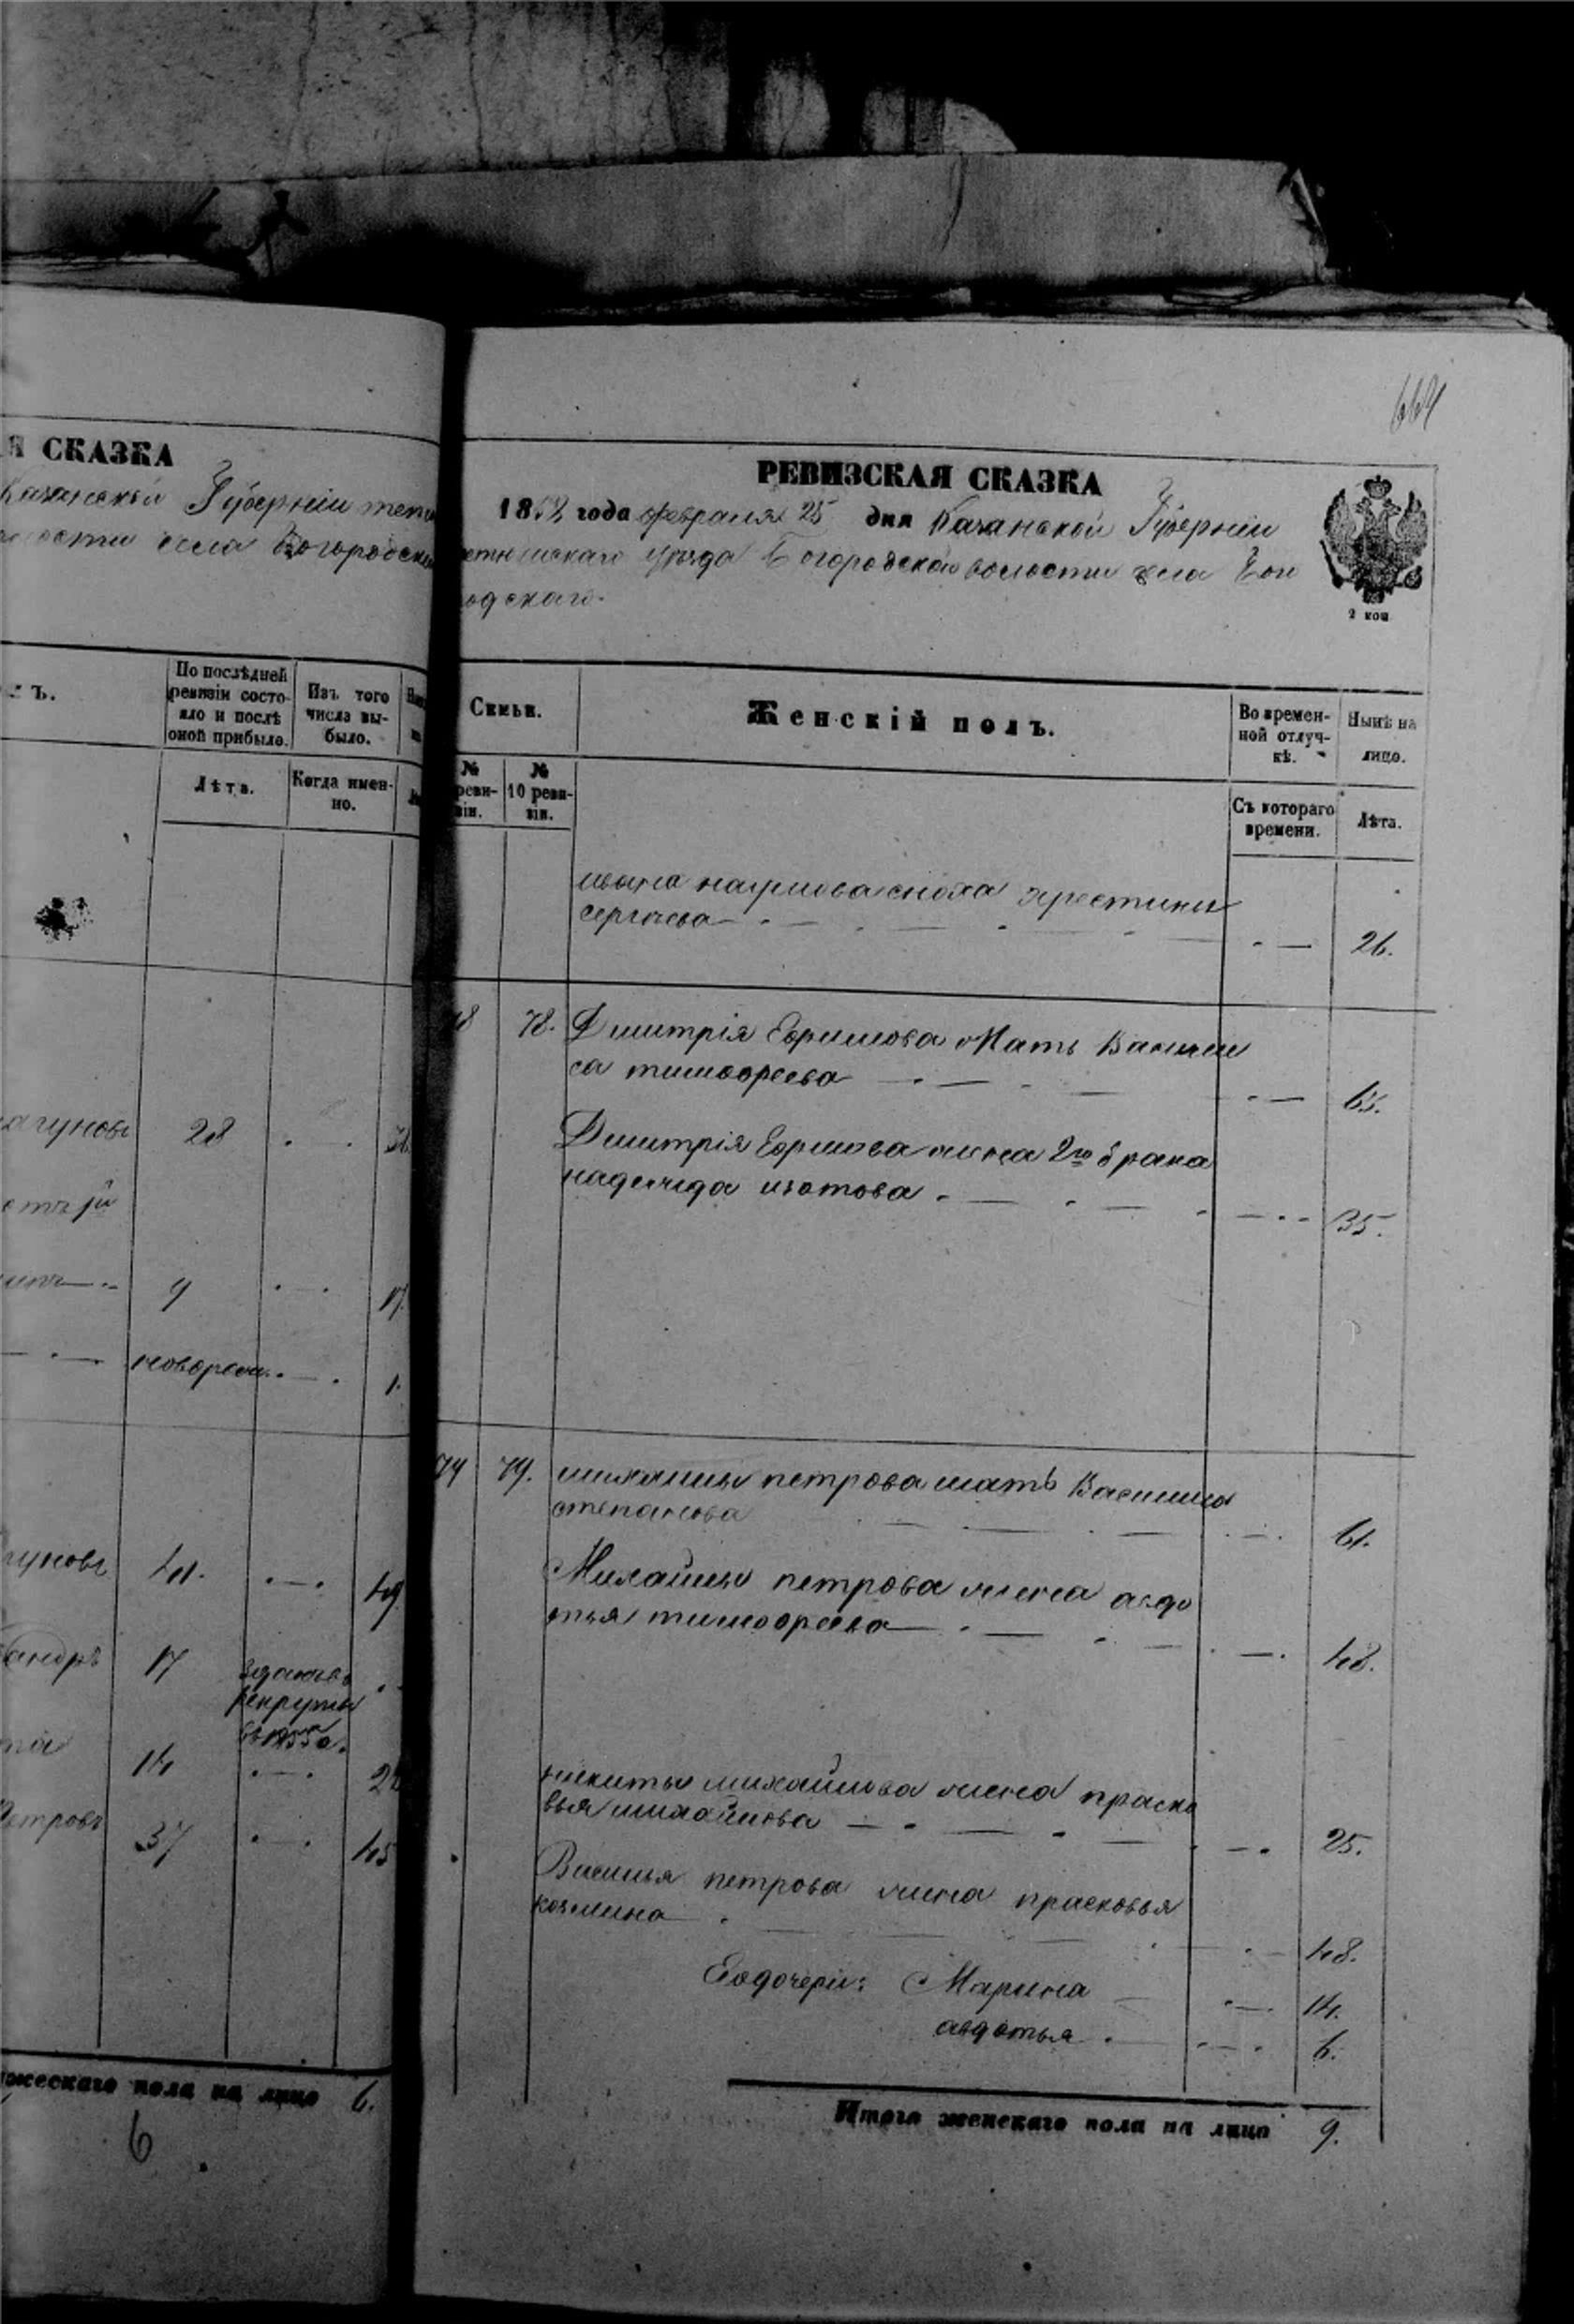 Я СКАЗКА
Казанской Губерніи тетю
волости села Богородска
ъ.
По послѣдней
ревизіи состо-
яло и послѣ
оной прибыло.
Изъ того
числа вы-
было.
Лѣта.
Когда имен-
но.
28
9
17.
новорожд.
1.
41.
49
17
зданъ въ
рекруты
въ 1855 г.
14
Петровъ
37
45
мужескаго пола на лицо 6.
6
664
РЕВИЗСКАЯ СКАЗКА
1858 года февраля 25 дня Казанской Губерніи
етюшскаго уѣзда Богородской волости села Бого
родскаго.
2 коп
Семьи.
Женскій полъ.
Во времен-
ной отлуч-
кѣ.
Нынѣ на
лицо.
№
реви-
зіи.
№
10 реви-
зіи.
Съ котораго
времени.
Лѣта.
ивана наумова сноха хрестинья
сергѣева 26.
78. Дмитрія Ефримова Мать Васили
са тимофеева 65.
Дмитрія Ефримова жена 2го брака
надежда изотова 35.
79. михайлы петрова мать Василиса
степанова 61.
Михайлы петрова жена авдо
тья тимофеева 48.
никиты михайлова жена праско
вья михайлова 25.
Василья петрова жена прасковья
козмина 48.
Ево дочери: Марина 14.
авдотья 6.
Итого женскаго пола на лицо 9.